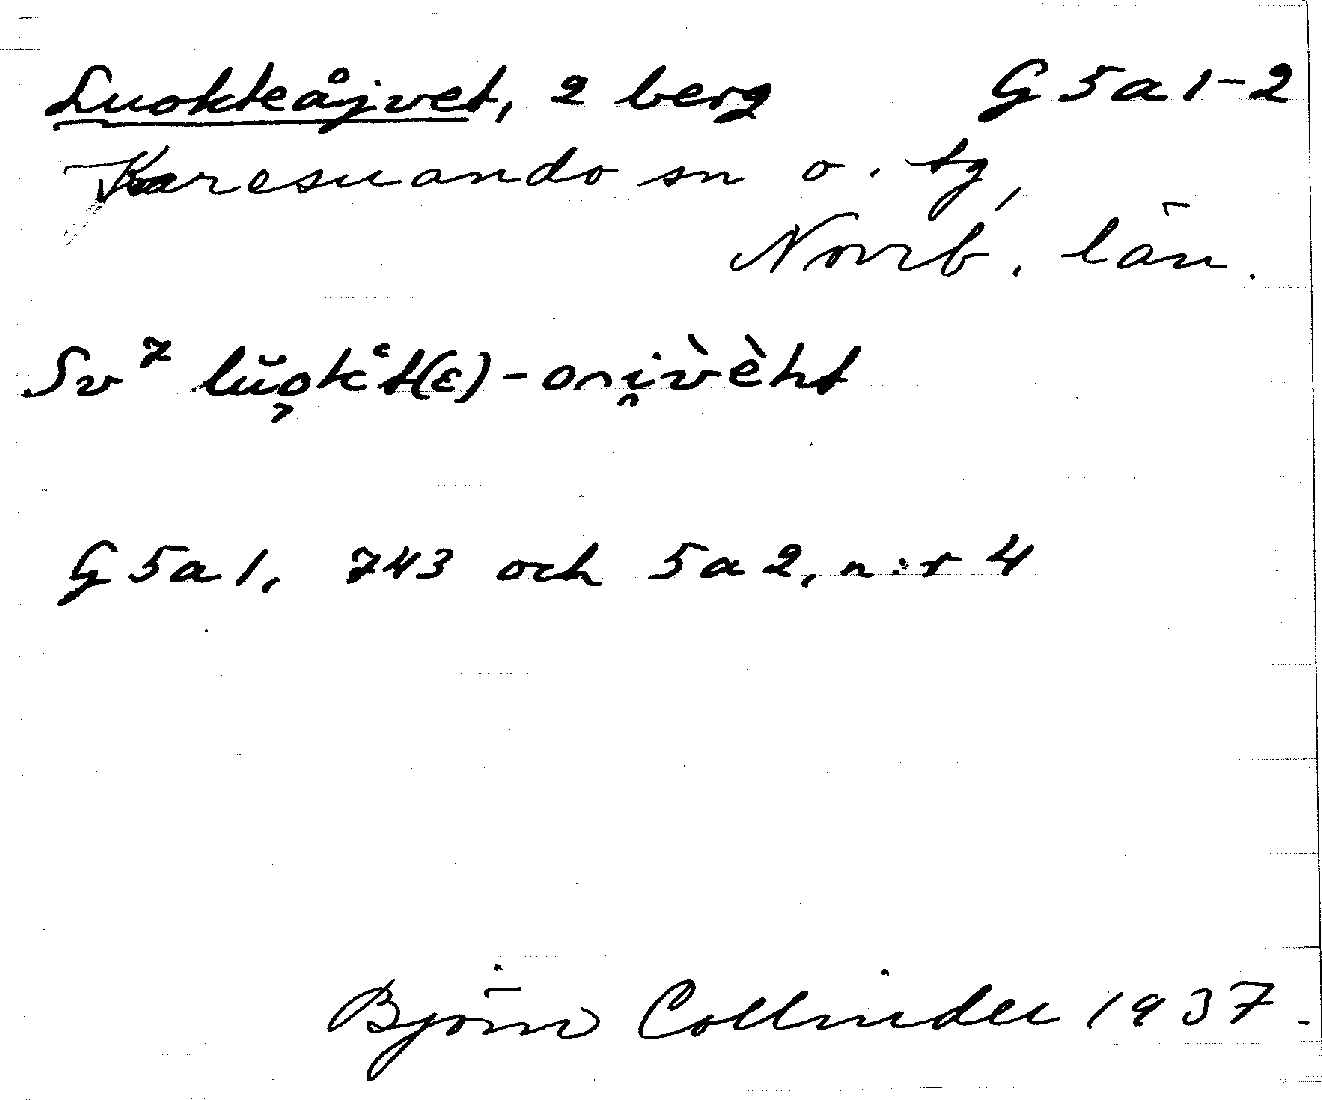 Luokteåjvet, 2 berg G 5a 1-2
Karesuando sn o. tg,
Norrb. län.
Sv 7
G 5a 1, 743 och 5a 2, n:r 4
Björn Collinder 1937.